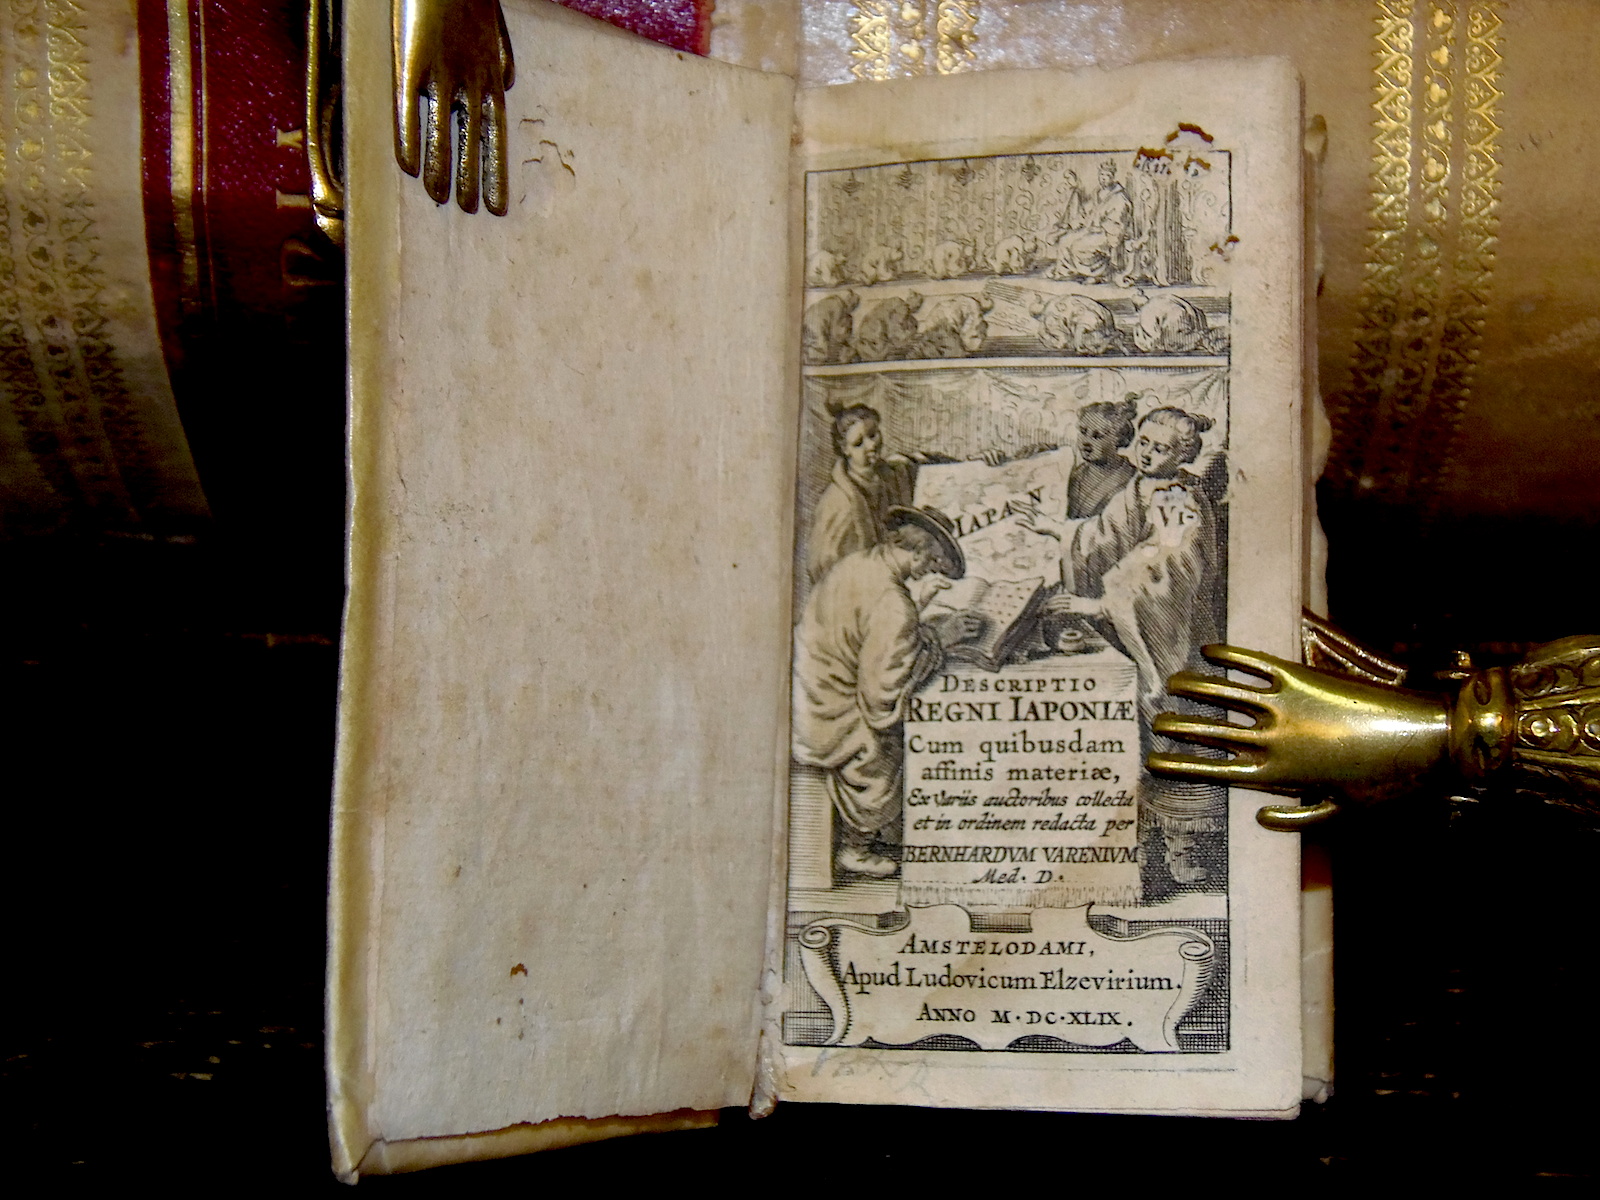 IAPAN
VI-
DESCRIPTIO
REGNI IAPONIÆ
Cum quibusdam
affinis materiæ,
Ex Variis auctoribus collecta
et in ordinem redacta per
BERNHARDVM VARENIVM
Med. D.
AMSTELODAMI,
Apud Ludovicum Elzevirium.
ANNO M·DC·XLIX.